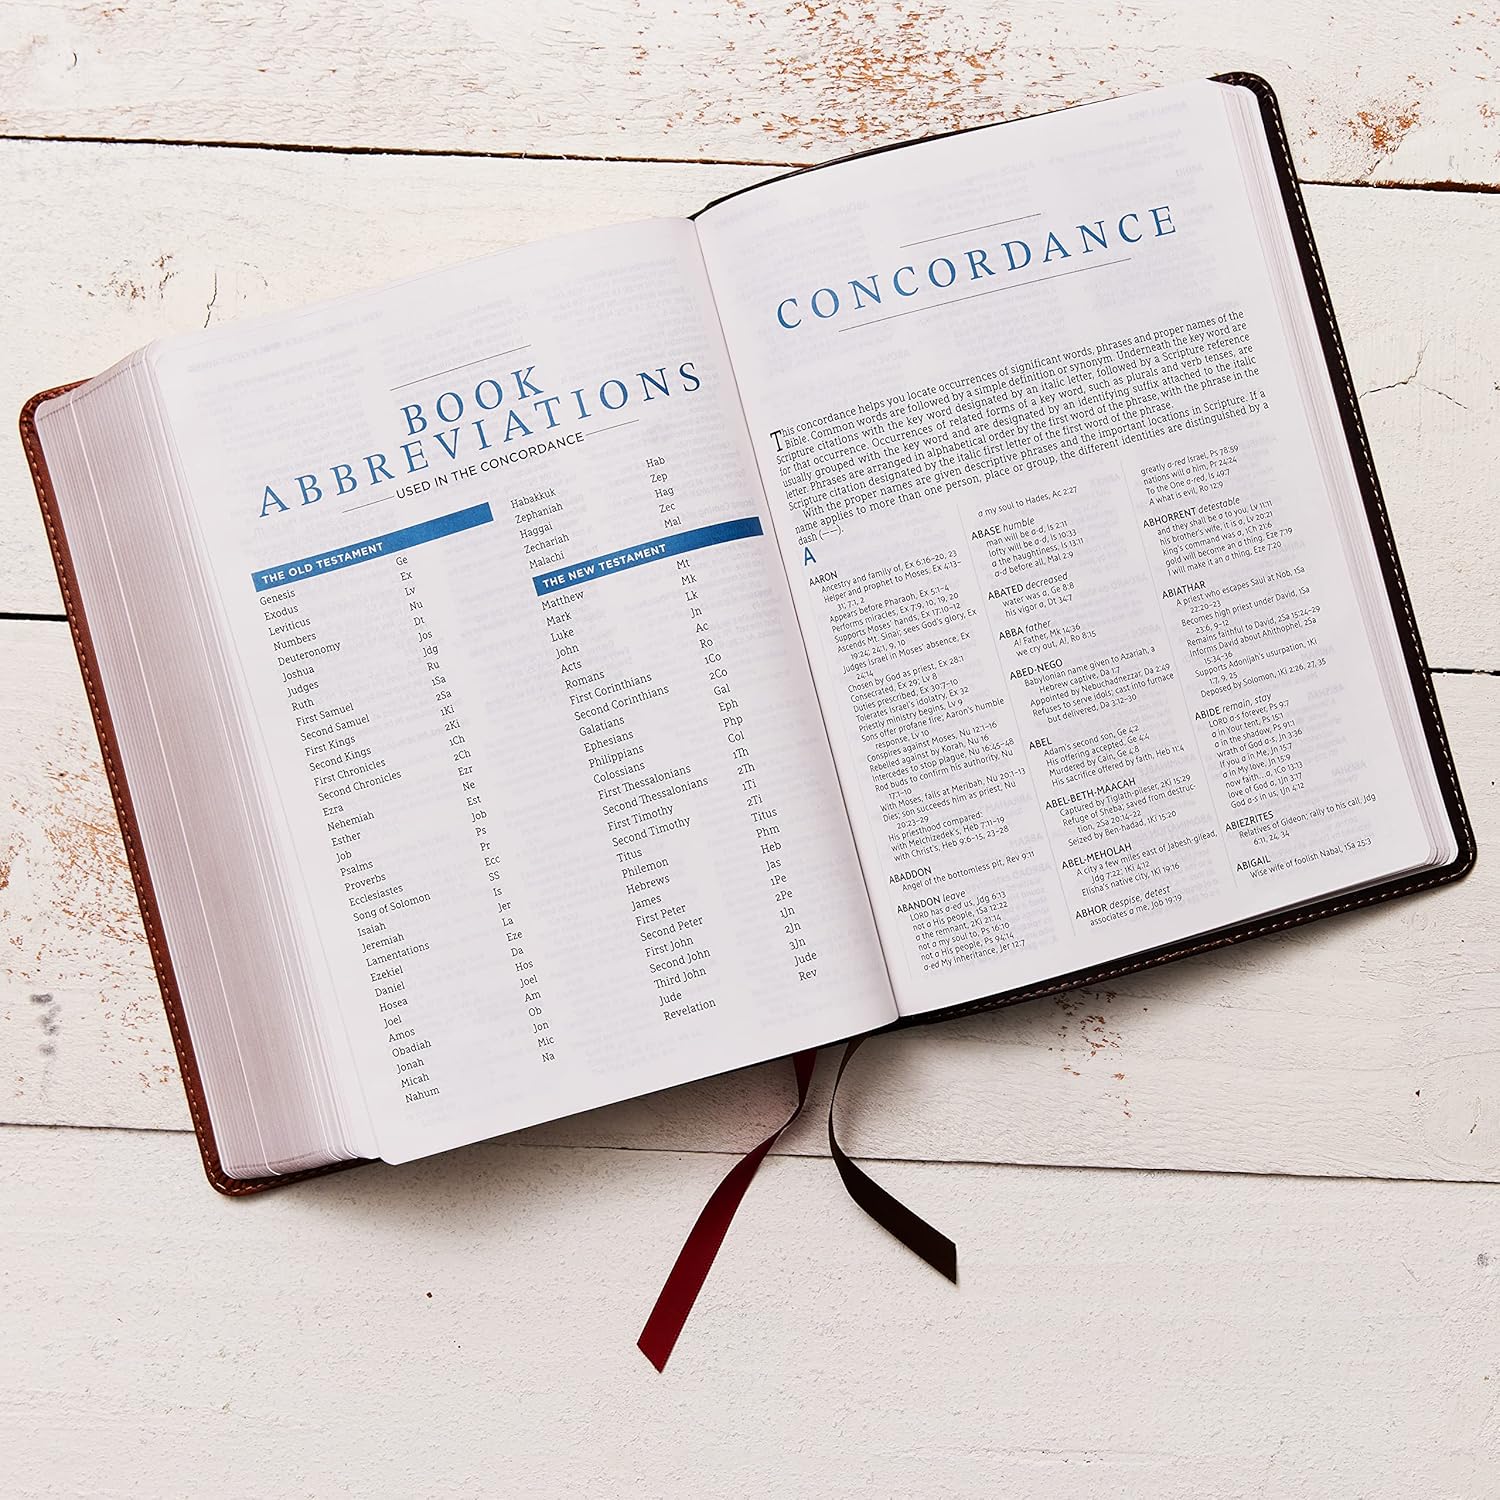 BOOK
ABBREVIATIONS
USED IN THE CONCORDANCE
THE OLD TESTAMENT
Genesis Ge
Exodus Ex
Leviticus Lv
Numbers Nu
Deuteronomy Dt
Joshua Jos
Judges Jdg
Ruth Ru
First Samuel 1Sa
Second Samuel 2Sa
First Kings 1Ki
Second Kings 2Ki
First Chronicles 1Ch
Second Chronicles 2Ch
Ezra Ezr
Nehemiah Ne
Esther Est
Job Job
Psalms Ps
Proverbs Pr
Ecclesiastes Ecc
Song of Solomon SS
Isaiah Is
Jeremiah Jer
Lamentations La
Ezekiel Eze
Daniel Da
Hosea Hos
Joel Joel
Amos Am
Obadiah Ob
Jonah Jon
Micah Mic
Nahum Na
Habakkuk Hab
Zephaniah Zep
Haggai Hag
Zechariah Zec
Malachi Mal
THE NEW TESTAMENT
Matthew Mt
Mark Mk
Luke Lk
John Jn
Acts Ac
Romans Ro
First Corinthians 1Co
Second Corinthians 2Co
Galatians Gal
Ephesians Eph
Philippians Php
Colossians Col
First Thessalonians 1Th
Second Thessalonians 2Th
First Timothy 1Ti
Second Timothy 2Ti
Titus Titus
Philemon Phm
Hebrews Heb
James Jas
First Peter 1Pe
Second Peter 2Pe
First John 1Jn
Second John 2Jn
Third John 3Jn
Jude Jude
Revelation Rev
CONCORDANCE
This concordance helps you locate occurrences of significant words, phrases and proper names of the
Bible. Common words are followed by a simple definition or synonym. Underneath the key word are
Scripture citations with the key word designated by an italic letter, followed by a Scripture reference
for that occurrence. Occurrences of related forms of a key word, such as plurals and verb tenses, are
usually grouped with the key word and are designated by an identifying suffix attached to the italic
letter. Phrases are arranged in alphabetical order by the first word of the phrase, with the phrase in the
Scripture citation designated by the italic first letter of the first word of the phrase.
With the proper names are given descriptive phrases and the important locations in Scripture. If a
name applies to more than one person, place or group, the different identities are distinguished by a
dash (—).
A
AARON
Ancestry and family of, Ex 6:16–20, 23
Helper and prophet to Moses, Ex 4:13–
31; 7:1, 2
Appears before Pharaoh, Ex 5:1–4
Performs miracles, Ex 7:9, 10, 19, 20
Supports Moses' hands, Ex 17:10–12
Ascends Mt. Sinai; sees God's glory, Ex
19:24; 24:1, 9, 10
Judges Israel in Moses' absence, Ex
24:14
Chosen by God as priest, Ex 28:1
Consecrated, Ex 29; Lv 8
Duties prescribed, Ex 30:7–10
Tolerates Israel's idolatry, Ex 32
Priestly ministry begins, Lv 9
Sons offer profane fire; Aaron's humble
response, Lv 10
Conspires against Moses, Nu 12:1–16
Rebelled against by Korah, Nu 16
Intercedes to stop plague, Nu 16:45–48
Rod buds to confirm his authority, Nu
17:1–10
With Moses, fails at Meribah, Nu 20:1–13
Dies; son succeeds him as priest, Nu
20:23–29
His priesthood compared:
with Melchizedek's, Heb 7:11–19
with Christ's, Heb 9:6–15, 23–28
ABADDON
Angel of the bottomless pit, Rev 9:11
ABANDON leave
LORD has a-ed us, Jdg 6:13
not a His people, 1Sa 12:22
a the remnant, 2Ki 21:14
not a my soul to, Ps 16:10
not a His people, Ps 94:14
a-ed My inheritance, Jer 12:7
a my soul to Hades, Ac 2:27
ABASE humble
man will be a-d, Is 2:11
lofty will be a-d, Is 10:33
a the haughtiness, Is 13:11
a-d before all, Mal 2:9
ABATED decreased
water was a, Ge 8:8
his vigor a, Dt 34:7
ABBA father
A! Father, Mk 14:36
we cry out, A!, Ro 8:15
ABED-NEGO
Babylonian name given to Azariah, a
Hebrew captive, Da 1:7
Appointed by Nebuchadnezzar, Da 2:49
Refuses to serve idols; cast into furnace
but delivered, Da 3:12–30
ABEL
Adam's second son, Ge 4:2
His offering accepted, Ge 4:4
Murdered by Cain, Ge 4:8
His sacrifice offered by faith, Heb 11:4
ABEL-BETH-MAACAH
Captured by Tiglath-pileser, 2Ki 15:29
Refuge of Sheba; saved from destruc-
tion, 2Sa 20:14–22
Seized by Ben-hadad, 1Ki 15:20
ABEL-MEHOLAH
A city a few miles east of Jabesh-gilead,
Jdg 7:22; 1Ki 4:12
Elisha's native city, 1Ki 19:16
ABHOR despise, detest
associates a me, Job 19:19
greatly a-red Israel, Ps 78:59
nations will a him, Pr 24:24
To the One a-red, Is 49:7
A what is evil, Ro 12:9
ABHORRENT detestable
and they shall be a to you, Lv 11:11
his brother's wife, it is a, Lv 20:21
king's command was a, 1Ch 21:6
gold will become an a thing, Eze 7:19
I will make it an a thing, Eze 7:20
ABIATHAR
A priest who escapes Saul at Nob, 1Sa
22:20–23
Becomes high priest under David, 1Sa
23:6, 9–12
Remains faithful to David, 2Sa 15:24–29
Informs David about Ahithophel, 2Sa
15:34–36
Supports Adonijah's usurpation, 1Ki
1:7, 9, 25
Deposed by Solomon, 1Ki 2:26, 27, 35
ABIDE remain, stay
LORD a-s forever, Ps 9:7
a in Your tent, Ps 15:1
a in the shadow, Ps 91:1
wrath of God a-s, Jn 3:36
If you a in Me, Jn 15:7
a in My love, Jn 15:9
now faith...a, 1Co 13:13
love of God a, 1Jn 3:17
God a-s in us, 1Jn 4:12
ABIEZRITES
Relatives of Gideon; rally to his call, Jdg
6:11, 24, 34
ABIGAIL
Wise wife of foolish Nabal, 1Sa 25:3